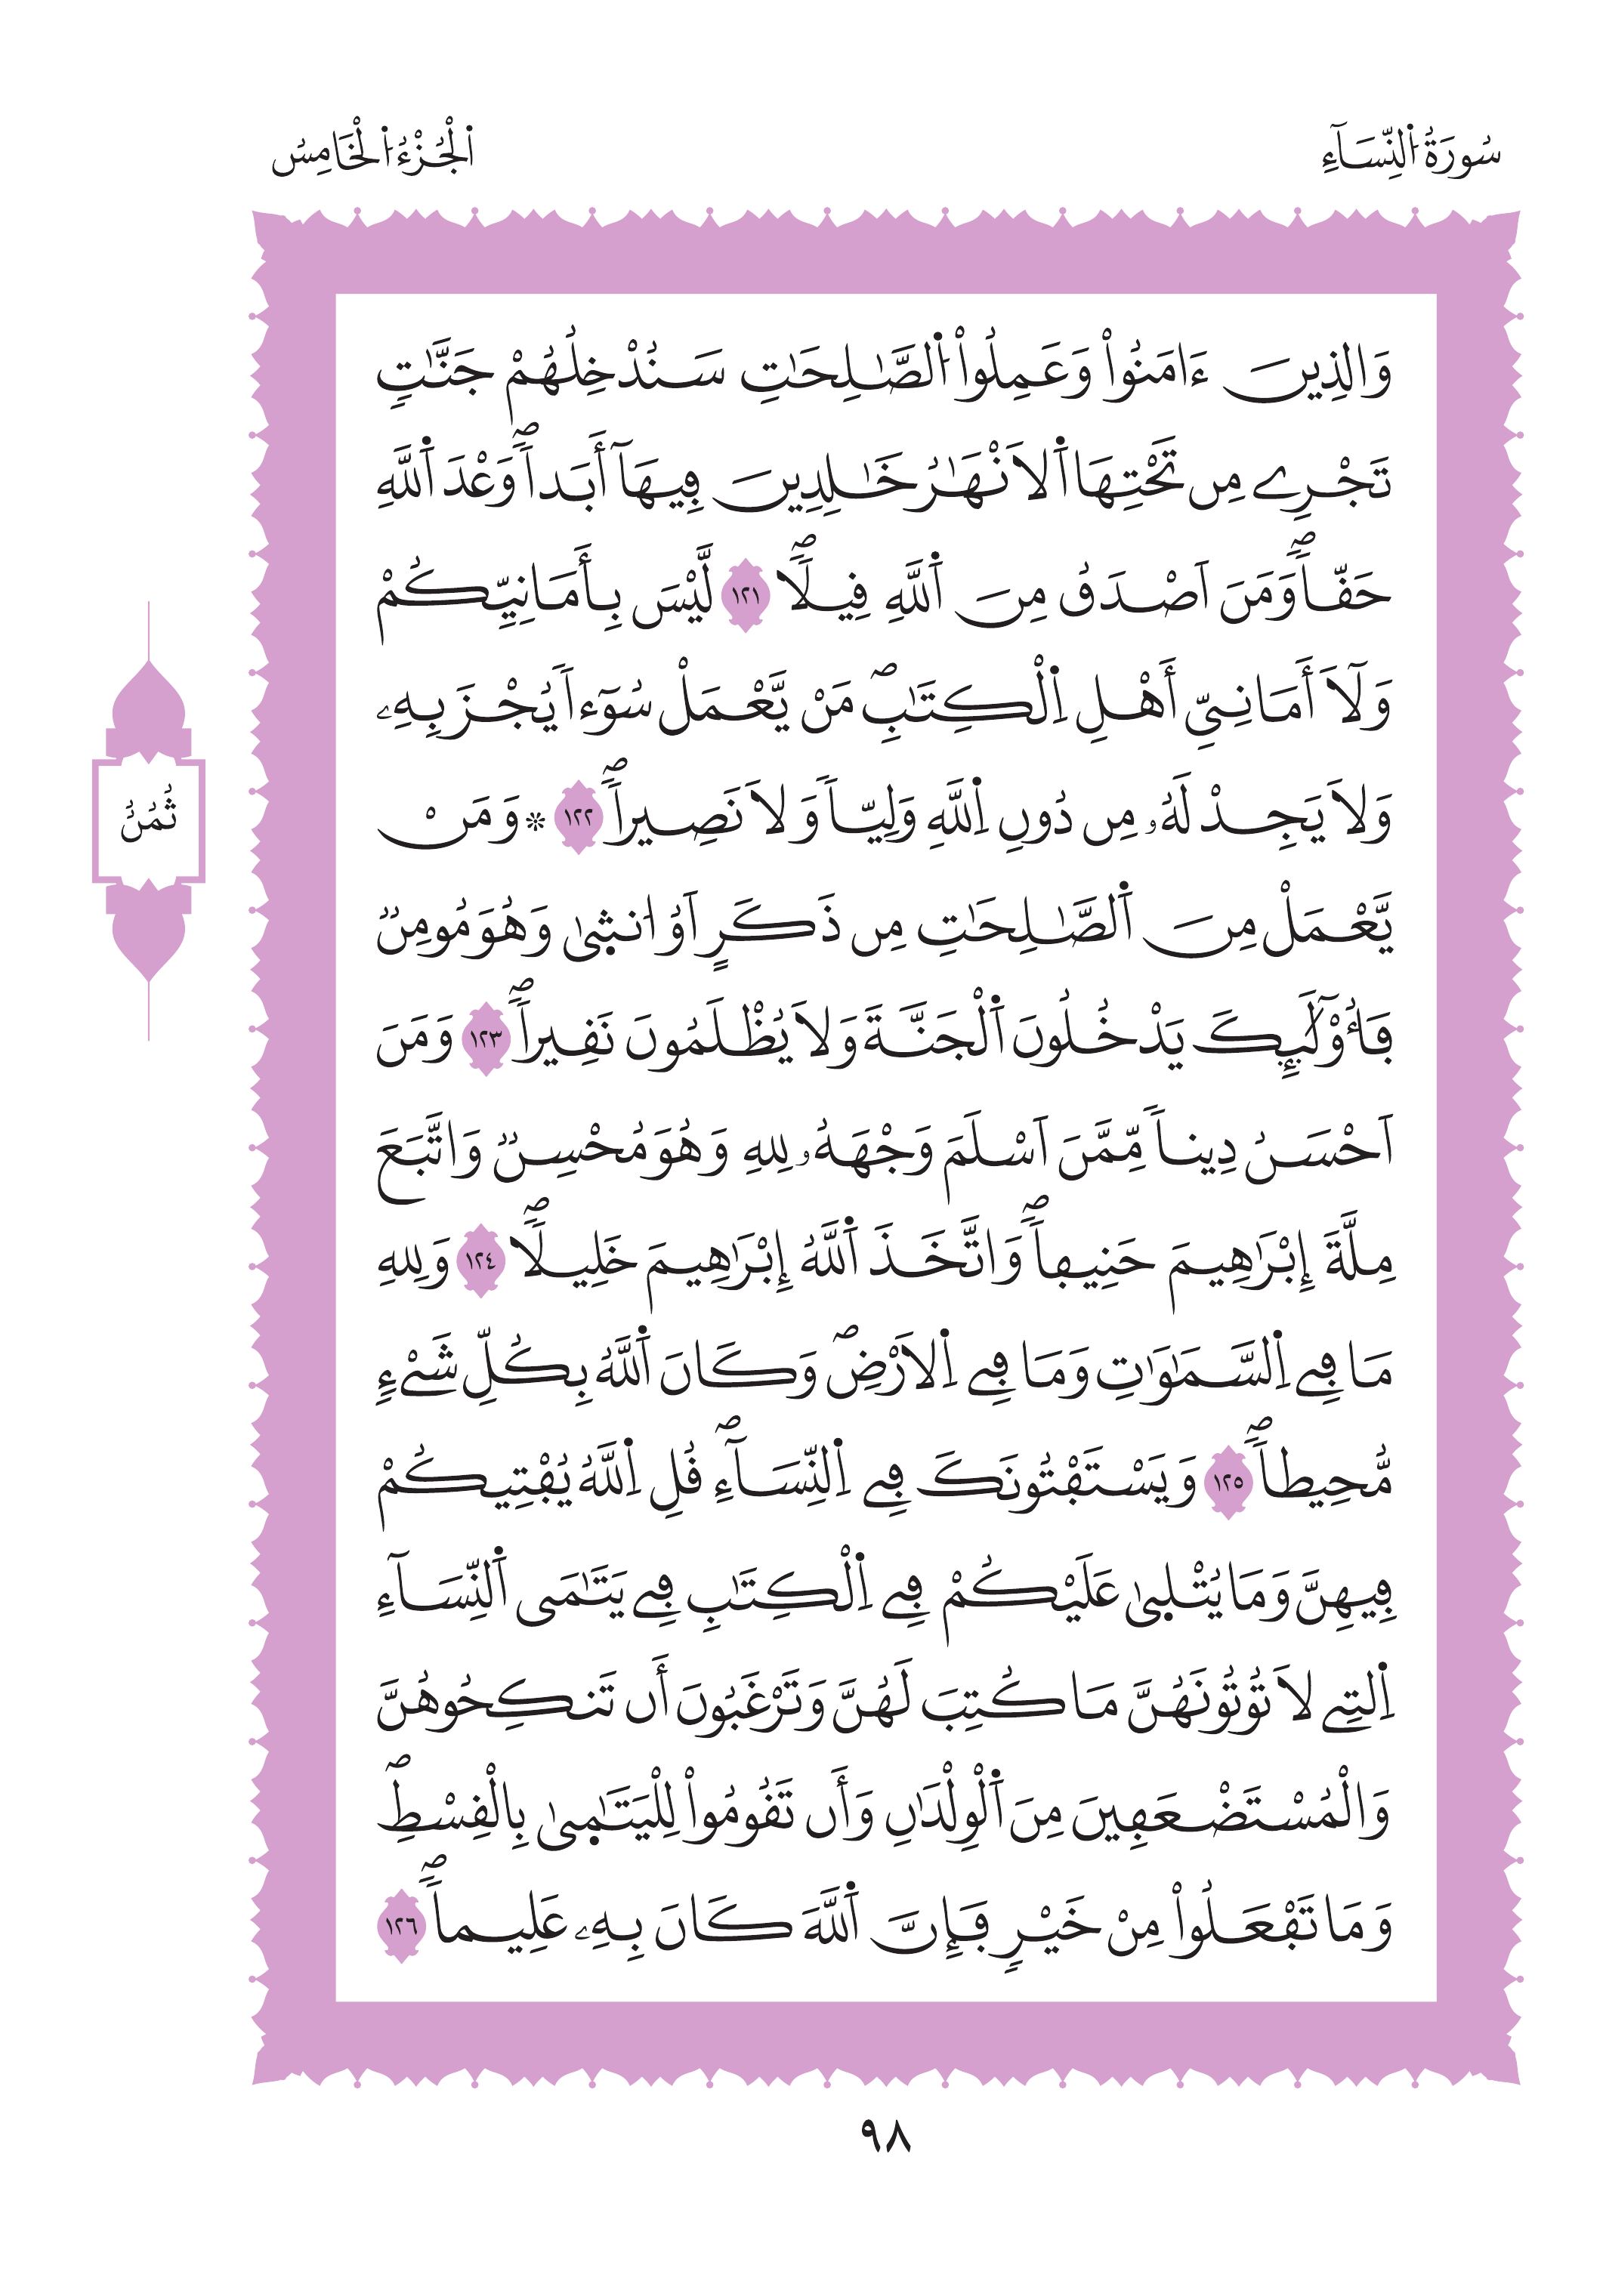 سُورَةُ اُ۬لنِّسَآءِ
اَ۬لْجُزْءُ اُ۬لْخَامِسُ
وَالذِينَ ءَامَنُواْ وَعَمِلُواْ اُ۬لصَّٰلِحَٰتِ سَنُدْخِلُهُمْ جَنَّٰتٍ
تَجْرِے مِن تَحْتِهَا اَ۬لَانْهَٰرُ خَٰلِدِينَ فِيهَآ أَبَداٗۖ وَعْدَ اَ۬للَّهِ
حَقّاٗۖ وَمَنَ اَصْدَقُ مِنَ اَ۬للَّهِ قِيلاٗۖ ١٢١ لَّيْسَ بِأَمَانِيِّكُمْ
وَلَآ أَمَانِيِّ أَهْلِ اِ۬لْكِتَٰبِۖ مَنْ يَّعْمَلْ سُوٓءاٗ يُجْزَ بِهِۦ
وَلَا يَجِدْ لَهُۥ مِن دُونِ اِ۬للَّهِ وَلِيّاٗ وَلَا نَصِيراٗۖ ١٢٢ * وَمَنْ
يَّعْمَلْ مِنَ اَ۬لصَّٰلِحَٰتِ مِن ذَكَرٍ اَوُ ا۟نث۪ىٰ وَهُوَ مُومِنٞ
فَأُوْلَٰٓئِكَ يَدْخُلُونَ اَ۬لْجَنَّةَ وَلَا يُظْلَمُونَ نَقِيراٗۖ ١٢٣ وَمَنَ
اَحْسَنُ دِيناٗ مِّمَّنَ اَسْلَمَ وَجْهَهُۥ لِلهِ وَهُوَ مُحْسِنٞ وَاتَّبَعَ
مِلَّةَ إِبْرَٰهِيمَ حَنِيفاٗۖ وَاتَّخَذَ اَ۬للَّهُ إِبْرَٰهِيمَ خَلِيلاٗۖ ١٢٤ وَلِلهِ
مَا فِے اِ۬لسَّمَٰوَٰتِ وَمَا فِے اِ۬لَارْضِۖ وَكَانَ اَ۬للَّهُ بِكُلِّ شَےْءٖ
مُّحِيطاٗۖ ١٢٥ وَيَسْتَفْتُونَكَ فِے اِ۬لنِّسَآءِۖ قُلِ اِ۬للَّهُ يُفْتِيكُمْ
فِيهِنَّ وَمَا يُتْل۪ىٰ عَلَيْكُمْ فِے اِ۬لْكِتَٰبِ فِے يَتَٰمَى اَ۬لنِّسَآءِ
اِ۬لتِے لَا تُوتُونَهُنَّ مَا كُتِبَ لَهُنَّ وَتَرْغَبُونَ أَن تَنكِحُوهُنَّ
وَالْمُسْتَضْعَفِينَ مِنَ اَ۬لْوِلْدَٰنِ وَأَن تَقُومُواْ لِلْيَتَٰم۪ىٰ بِالْقِسْطِۖ
وَمَا تَفْعَلُواْ مِنْ خَيْرٖ فَإِنَّ اَ۬للَّهَ كَانَ بِهِۦ عَلِيماٗۖ ١٢٦
ثُمُنُ
٩٨